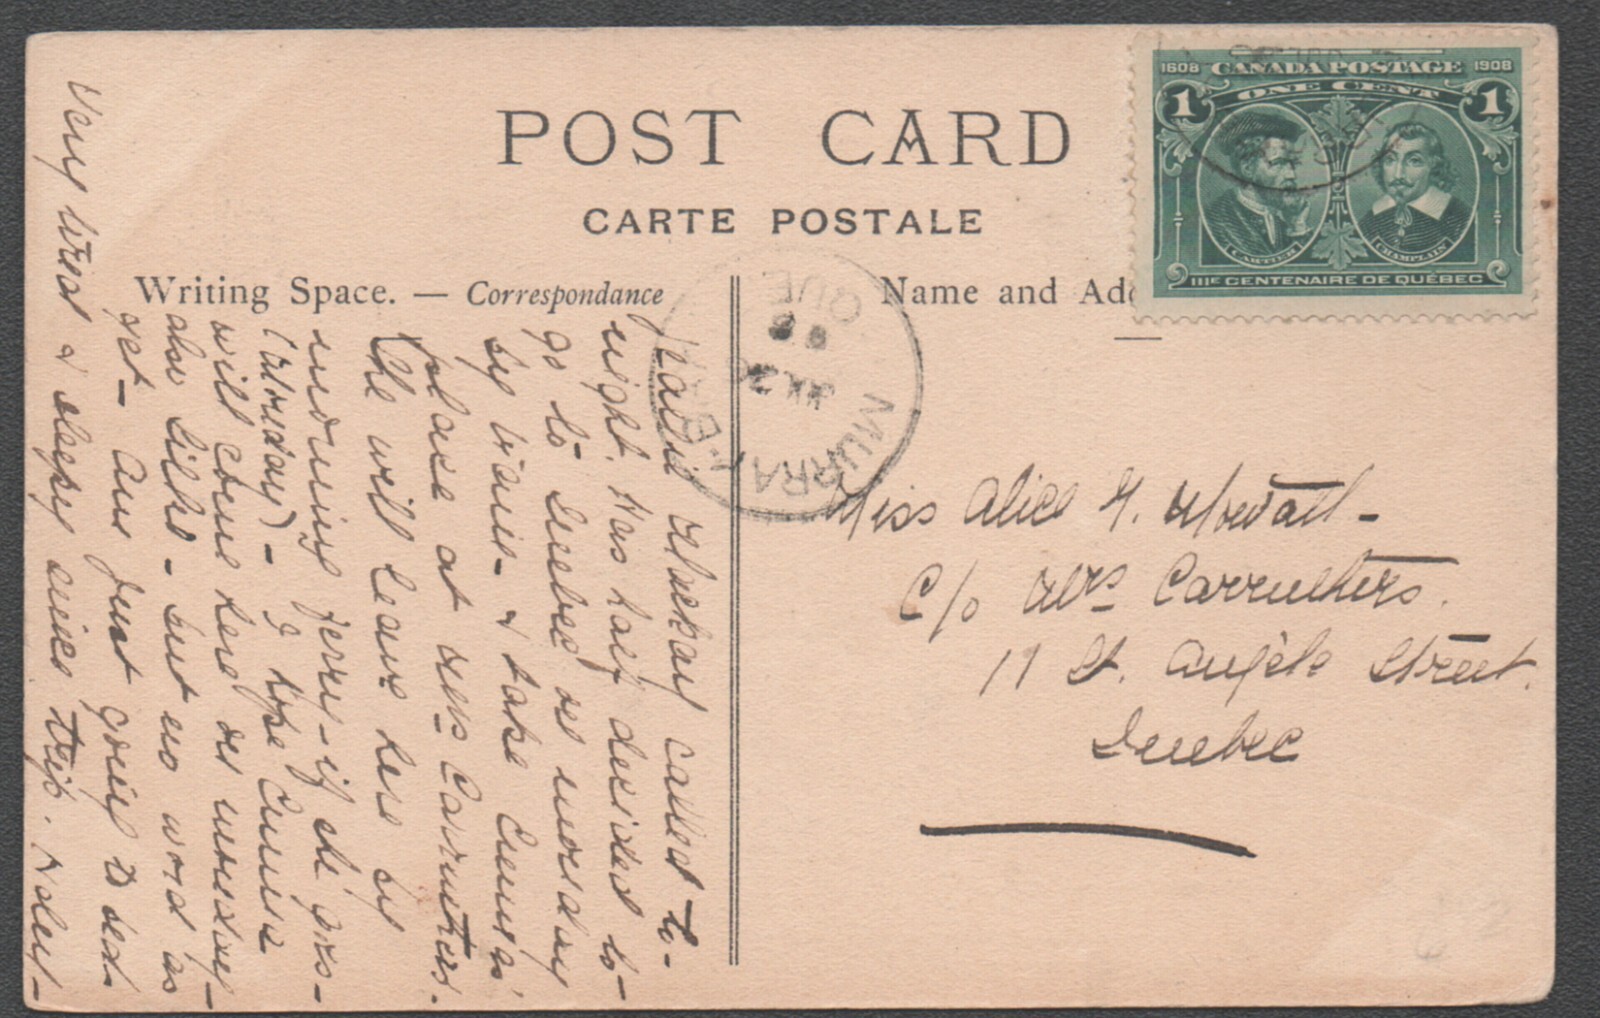 POST CARD
CARTE POSTALE
Writing Space. — Correspondance
Name and Add
1608 CANADA POSTAGE 1908
1 ONE CENT 1
CARTIER
CHAMPLAIN
IIIE CENTENAIRE DE QUÉBEC
MURRAY
QUE
Miss Alice G.
C/o Mrs Carruthers.
11 St. Angèle Street.
Quebec
Mackay called to-
night. Has half decided to-
go to Quebec on monday
by train - & take Emma's
place at Mrs Carruthers.
She will leave here by
morning ferry - if she goes -
(monday) - I hope Emma
will come here on monday -
also - but no word as
yet - Am just going to bed.
Very tired & sleepy since trip.